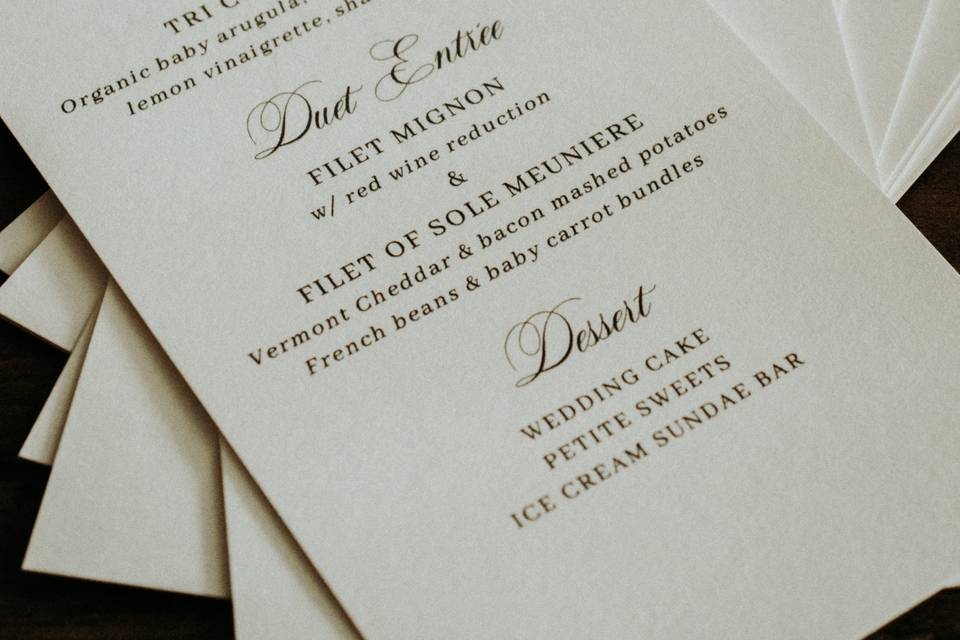 TRI
Organic baby arugula,
lemon vinaigrette,
Duet Entrée
FILET MIGNON
w/ red wine reduction
&
FILET OF SOLE MEUNIERE
Vermont Cheddar & bacon mashed potatoes
French beans & baby carrot bundles
Dessert
WEDDING CAKE
PETITE SWEETS
ICE CREAM SUNDAE BAR